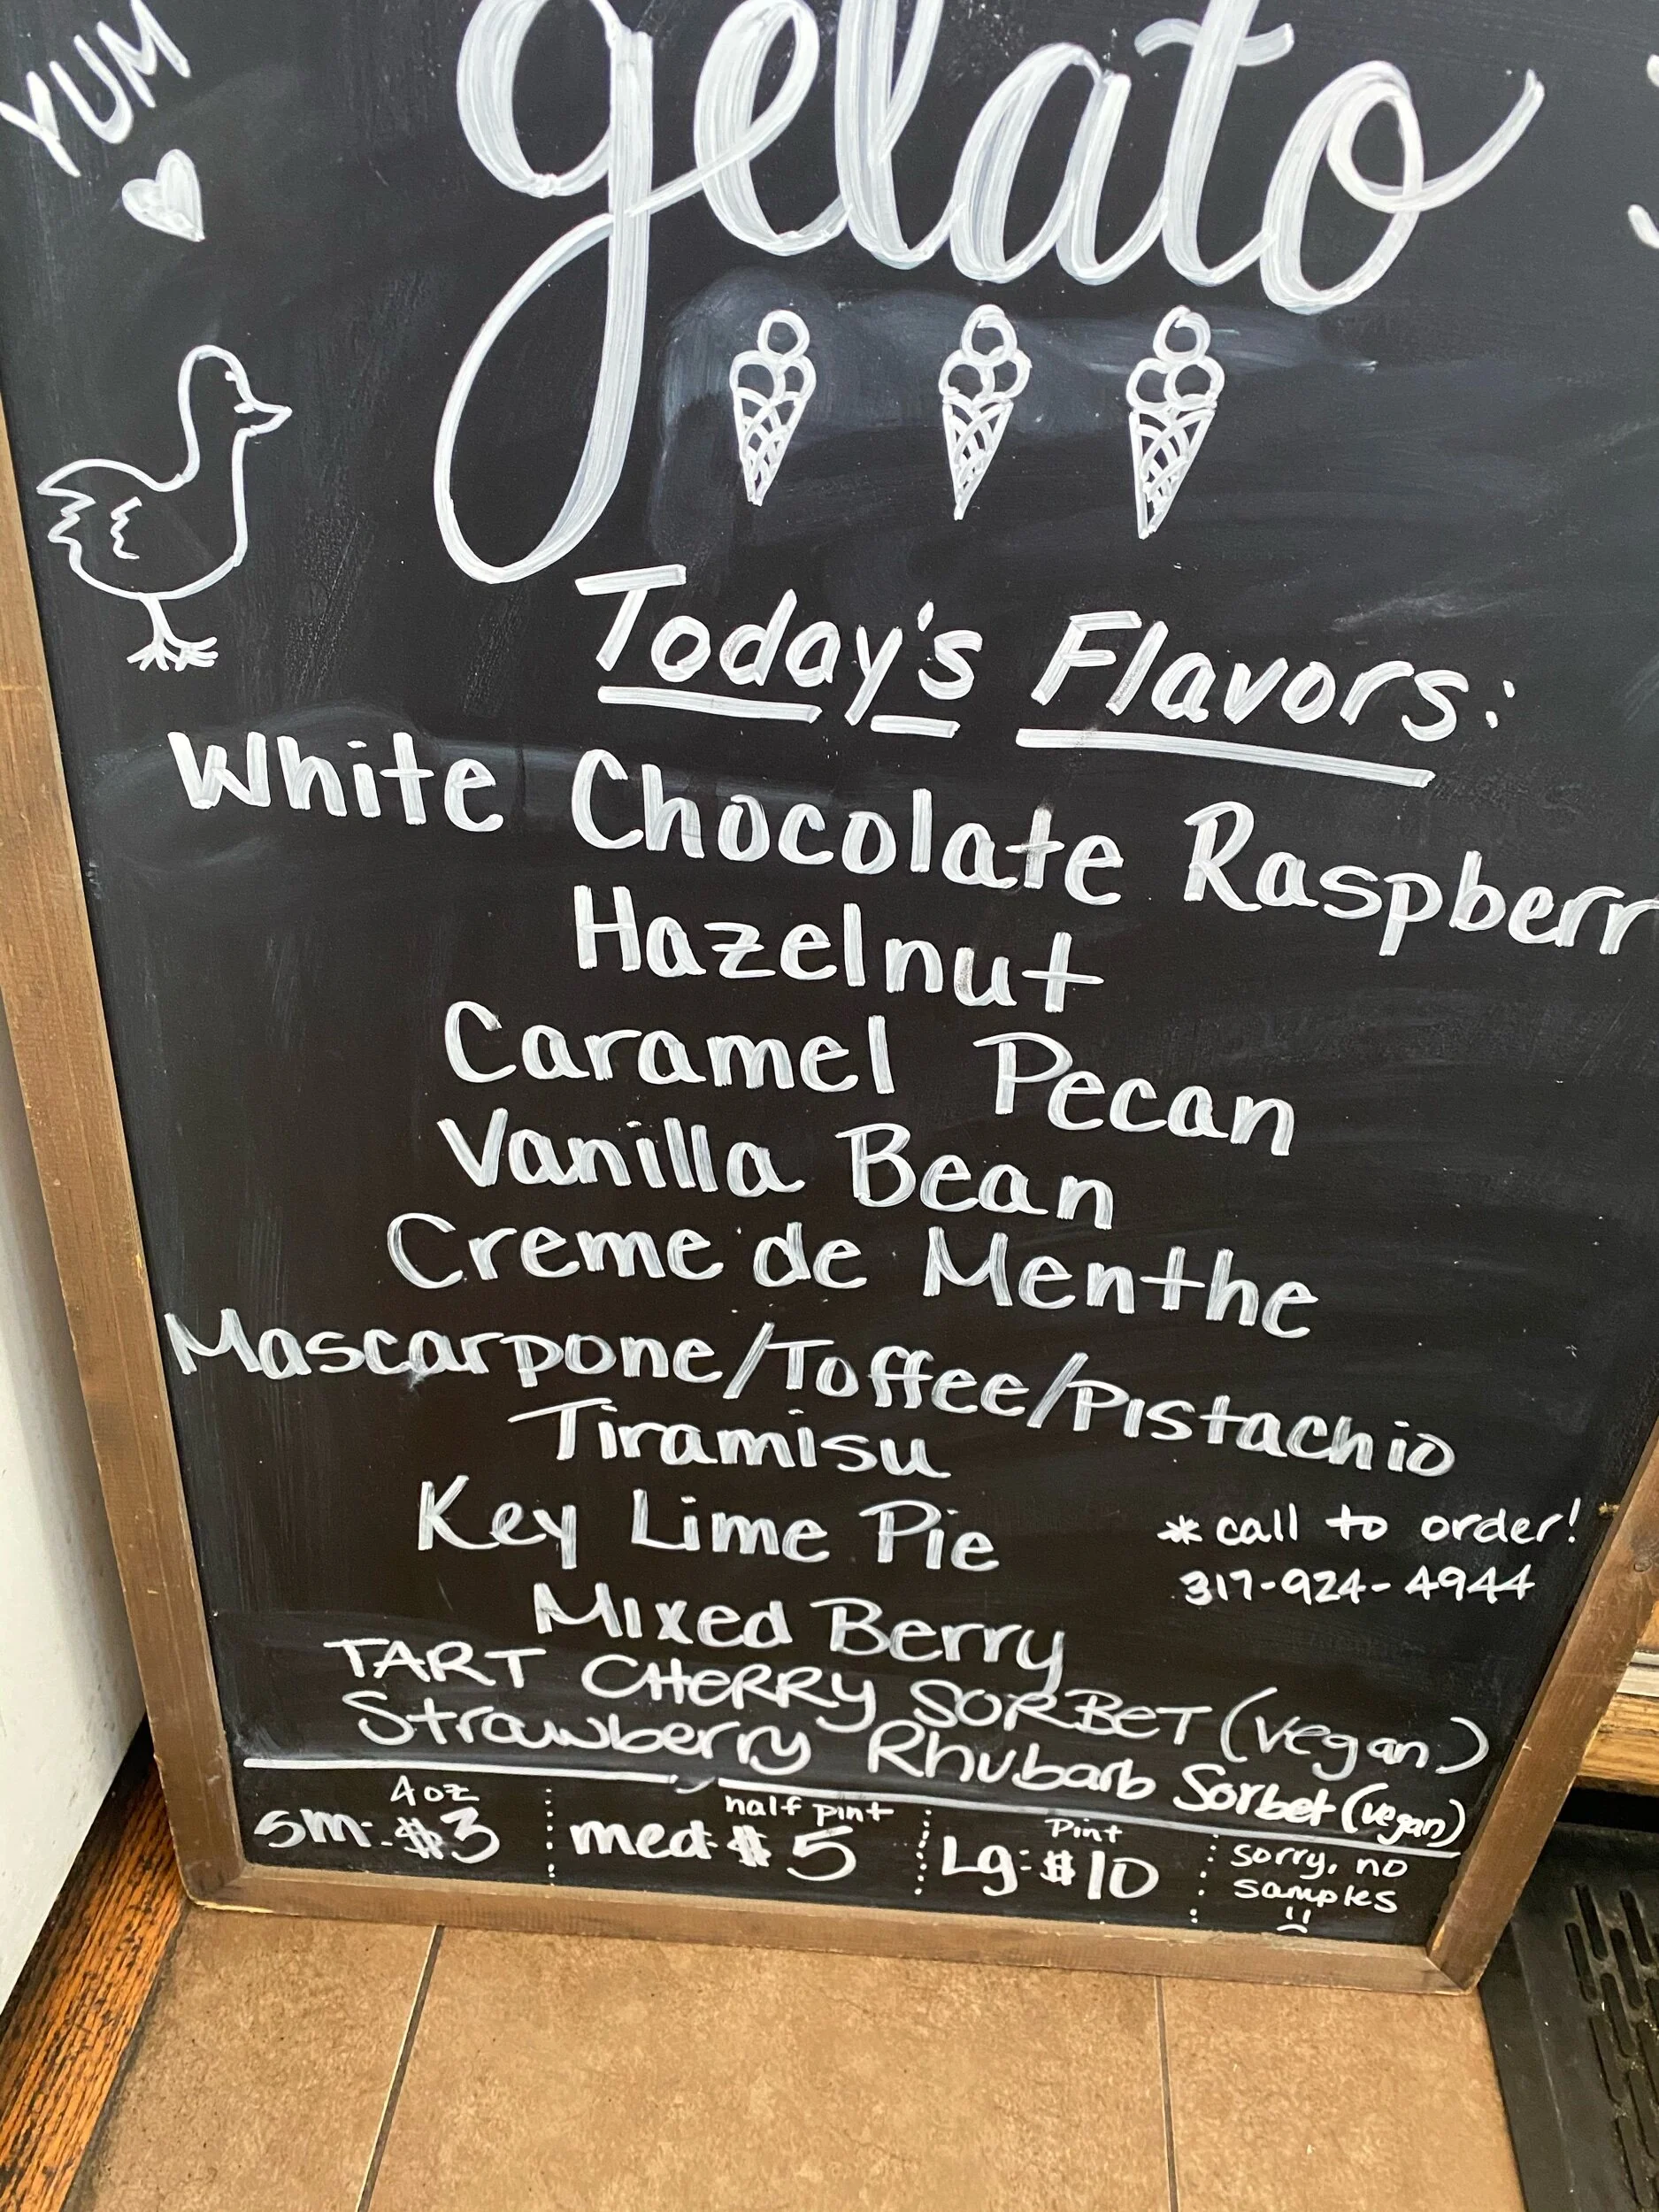 YUM
gelato
Today's Flavors:
White Chocolate Raspberr
Hazelnut
Caramel Pecan
Vanilla Bean
Creme de Menthe
Mascarpone/Toffee/Pistachio
Tiramisu
Key Lime Pie
* call to order!
317-924-4944
Mixed Berry
TART CHERRY SORBET (vegan)
Strawberry Rhubarb Sorbet (vegan)
4oz
sm: $3
half pint
med $5
Pint
Lg: $10
sorry, no
samples